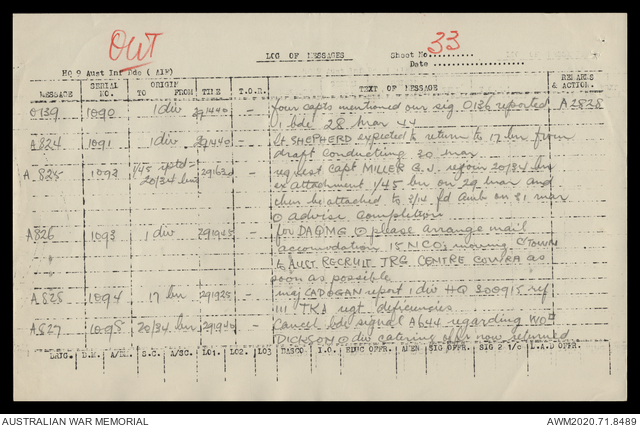 OUT
LOG OF MESSAGES
Sheet No. 33
Date
HQ 9 Aust Inf Bde (AIF)
MESSAGE SERIAL NO. ORIGIN TO FROM TIME T.O.R. TEXT OF MESSAGE REMARKS & ACTION.
O139 1090 1 div 271440 - four capts mentioned our sig O136 reported A2828
1 bde 28 mar 44
A824 1091 1 div 271440 - Lt SHEPHERD expected to return to 17 bn from
draft conducting 30 mar
A 825 1092 1/45 rptd 20/34 bn 291630 - request Capt MILLER G.J. rejoin 20/34 bn
ex attachment 1/45 bn on 29 mar and
then be attached to 3/14 fd amb on 31 mar
⊙ advise completion
A826 1093 1 div 291945 - for DAQMG ⊙ please arrange mail
" accomodation 18 NCO's moving C/Town
" to AUST RECRUIT TRG CENTRE COWRA as
soon as possible
A828 1094 17 bn 291925 - maj CADOGAN report 1 div HQ 300915 ref
111 TKA regt deficiencies
A827 1095 20/34 bn 291940 - Cancel bde signal A644 regarding WOII
DICKSON ⊙ div catering offr now returned
BRIG. B.M. A/BM. S.C. A/SC. LO1. LO2. LO3 BASCO I.O. EDUC OFFR. AMEN SIG OFFR. SIG 2 i/c L.A.D OFFR.
AUSTRALIAN WAR MEMORIAL
AWM2020.71.8489